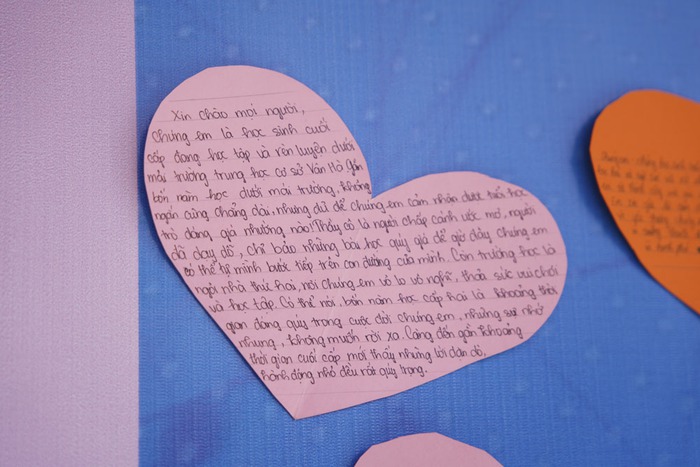 Xin chào mọi người,
Chúng em là học sinh cuối
cấp đang học tập và rèn luyện dưới
mái trường trung học cơ sở Văn Hồ. Gần
bốn năm học dưới mái trường, không
ngắn cũng chẳng dài, nhưng đủ để chúng em cảm nhận được tuổi học
trò đáng giá nhường nào! Thầy cô là người chắp cánh ước mơ, người
đã dạy dỗ, chỉ bảo những bài học quý giá để giờ đây chúng em
có thể tự mình bước tiếp trên con đường của mình. Còn trường học là
ngôi nhà thứ hai, nơi chúng em vô lo vô nghĩ, thả sức vui chơi
và học tập. Có thể nói, bốn năm học cấp hai là khoảng thời
gian đáng quý trong cuộc đời chúng em, những sự nhớ
nhung, không muốn rời xa. Càng đến gần khoảng
thời gian cuối cấp mới thấy những lời dặn dò,
hành động nhỏ đều rất quý trọng.